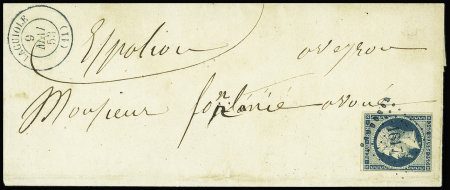 LAGUIOLE (11)
9
MAI
53
Espalion aveyron
Monsieur avoué